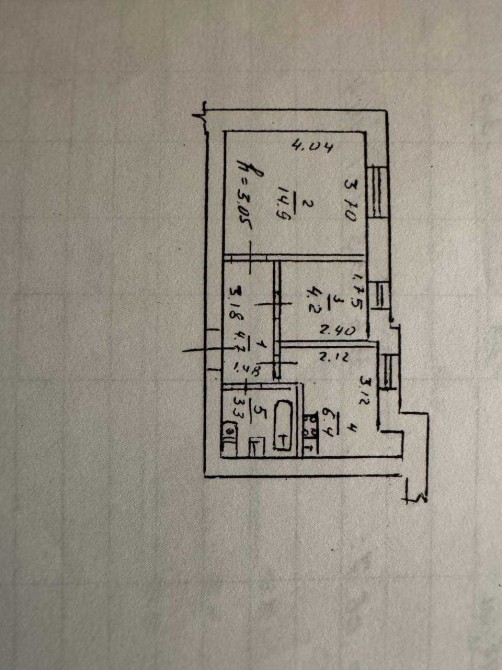 4.04
3.70
2
14.9
h = 3.05
1.75
3
4.2
2.40
3.18
1
4.7
1.48
2.12
3.12
4
6.4
5
3.3